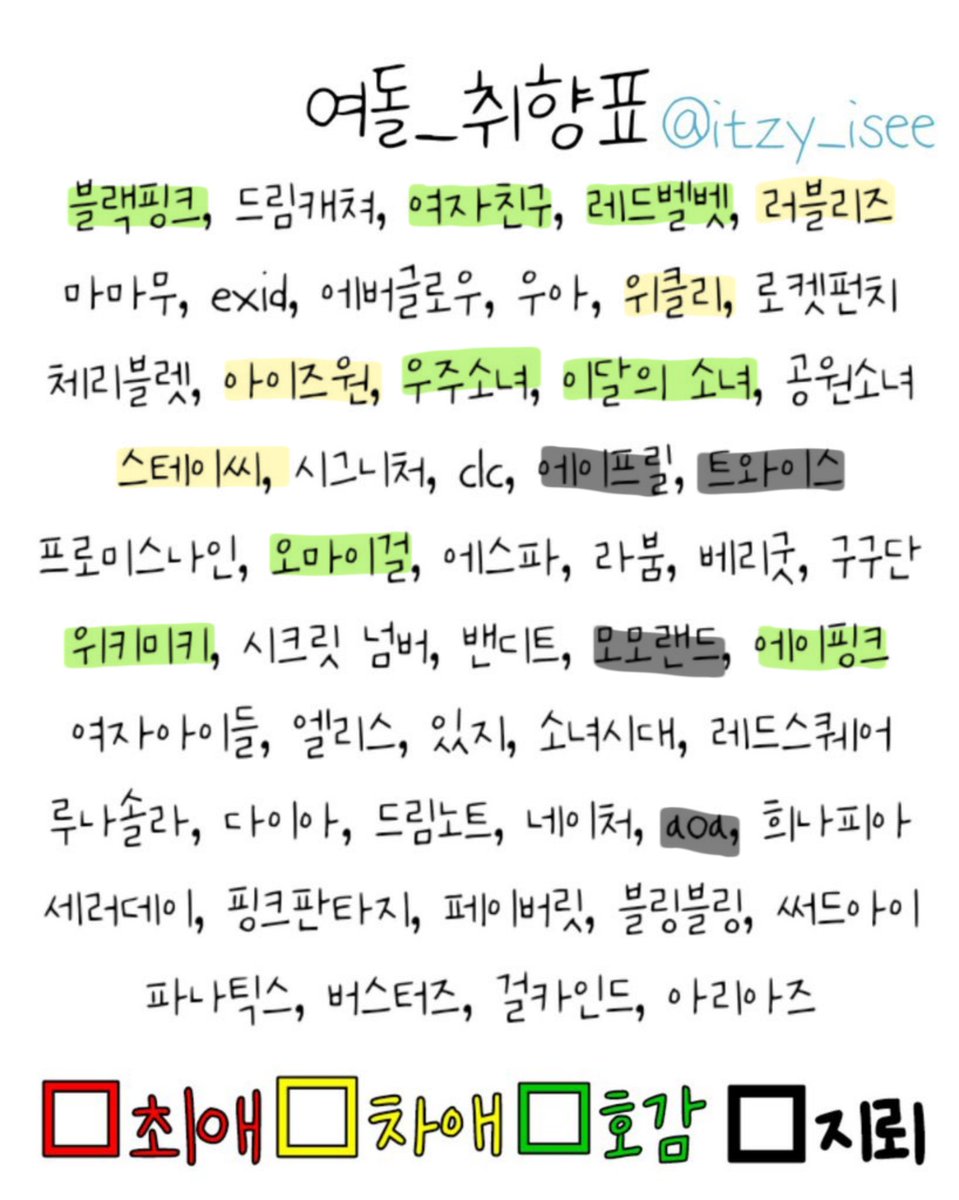 여돌_취향표 @itzy_isee
블랙핑크, 드림캐쳐, 여자친구, 레드벨벳, 러블리즈
마마무, exid, 에버글로우, 우아, 위클리, 로켓펀치
체리블렛, 아이즈원, 우주소녀, 이달의 소녀, 공원소녀
스테이씨, 시그니처, clc, 에이프릴, 트와이스
프로미스나인, 오마이걸, 에스파, 라붐, 베리굿, 구구단
위키미키, 시크릿 넘버, 밴디트, 모모랜드, 에이핑크
여자아이들, 엘리스, 있지, 소녀시대, 레드스퀘어
루나솔라, 다이아, 드림노트, 네이처, aoa, 희나피아
세러데이, 핑크판타지, 페이버릿, 블링블링, 써드아이
파나틱스, 버스터즈, 걸카인드, 아리아즈
최애 차애 호감 지뢰